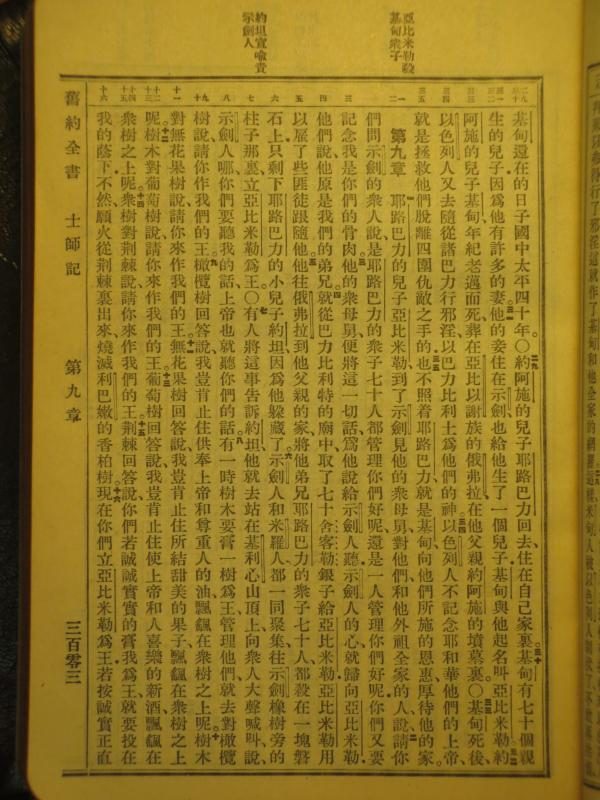 亞比米勒殺
基甸衆子
約坦宣喩責
示劍人
基甸還在的日子國中太平四十年。○約阿施的兒子耶路巴力回去住在自己家裏基甸有七十個親
生的兒子因爲他有許多的妻他的妾住在示劍也給他生了一個兒子基甸與他起名叫亞比米勒約
阿施的兒子基甸年紀老邁而死葬在亞比以謝族的俄弗拉在他父親約阿施的墳墓裏○基甸死後
以色列人又去隨從諸巴力行邪淫以巴力比利土爲他們的神以色列人不記念耶和華他們的上帝
就是拯救他們脫離四圍仇敵之手的也不照着耶路巴力就是基甸向他們所施的恩惠厚待他的家
第九章 耶路巴力的兒子亞比米勒到了示劍見他的衆母舅對他們和他外祖全家的人說請你
們問示劍的衆人說是耶路巴力的衆子七十人都管理你們好呢還是一人管理你們好呢你們又要
記念我是你們的骨肉他的衆母舅便將這一切話爲他說給示劍人聽示劍人的心就歸向亞比米勒
他們說他原是我們的弟兄就從巴力比利特的廟中取了七十舍客勒銀子給亞比米勒亞比米勒用
以雇了些匪徒跟隨他他往俄弗拉到他父親的家將他弟兄耶路巴力的衆子七十人都殺在一塊磐
石上只剩下耶路巴力的小兒子約坦因爲他躲藏了示劍人和米羅人都一同聚集往示劍橡樹旁的
柱子那裏立亞比米勒爲王○有人將這事告訴約坦他就去站在基利心山頂上向衆人大聲喊叫說
示劍人哪你們要聽我的話上帝也就聽你們的話有一時樹木要膏一樹爲王管理他們就去對橄欖
樹說請你作我們的王橄欖樹回答說我豈肯止住供奉上帝和尊重人的油飄飖在衆樹之上呢樹木
對無花果樹說請你來作我們的王無花果樹回答說我豈肯止住所結甜美的果子飄飖在衆樹之上
呢樹木對葡萄樹說請你來作我們的王葡萄樹回答說我豈肯止住使上帝和人喜樂的新酒飄飖在
衆樹之上呢衆樹對荆棘說請你來作我們的王荆棘回答說你們若誠誠實實的膏我爲王就要投在
我的蔭下不然願火從荆棘裏出來燒滅利巴嫩的香柏樹現在你們立亞比米勒爲王若按誠實正直
舊約全書 士師記 第九章 三百零三